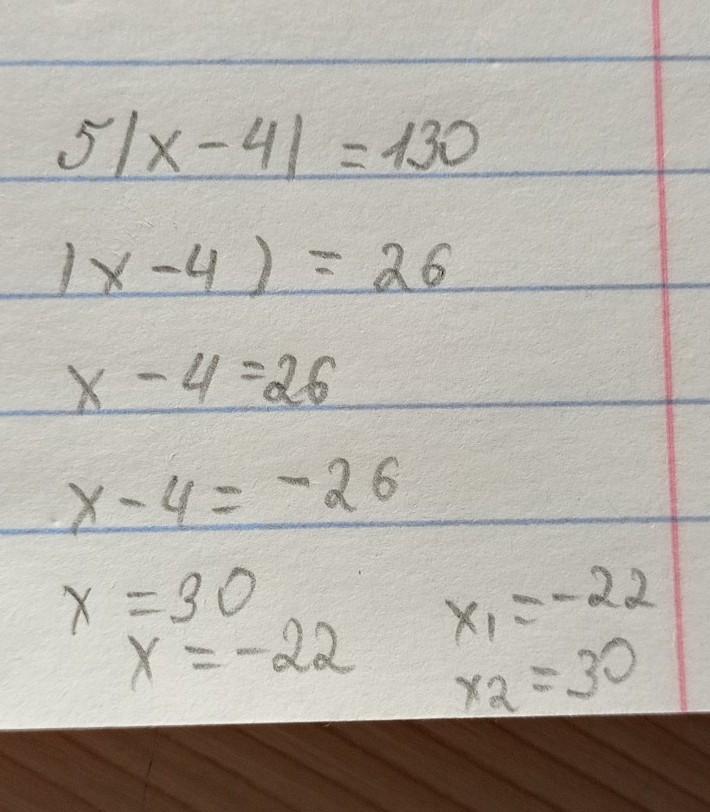 5|x-4| = 130
|x-4) = 26
x-4=26
x-4= -26
x = 30
x = -22
x1 = -22
x2 = 30